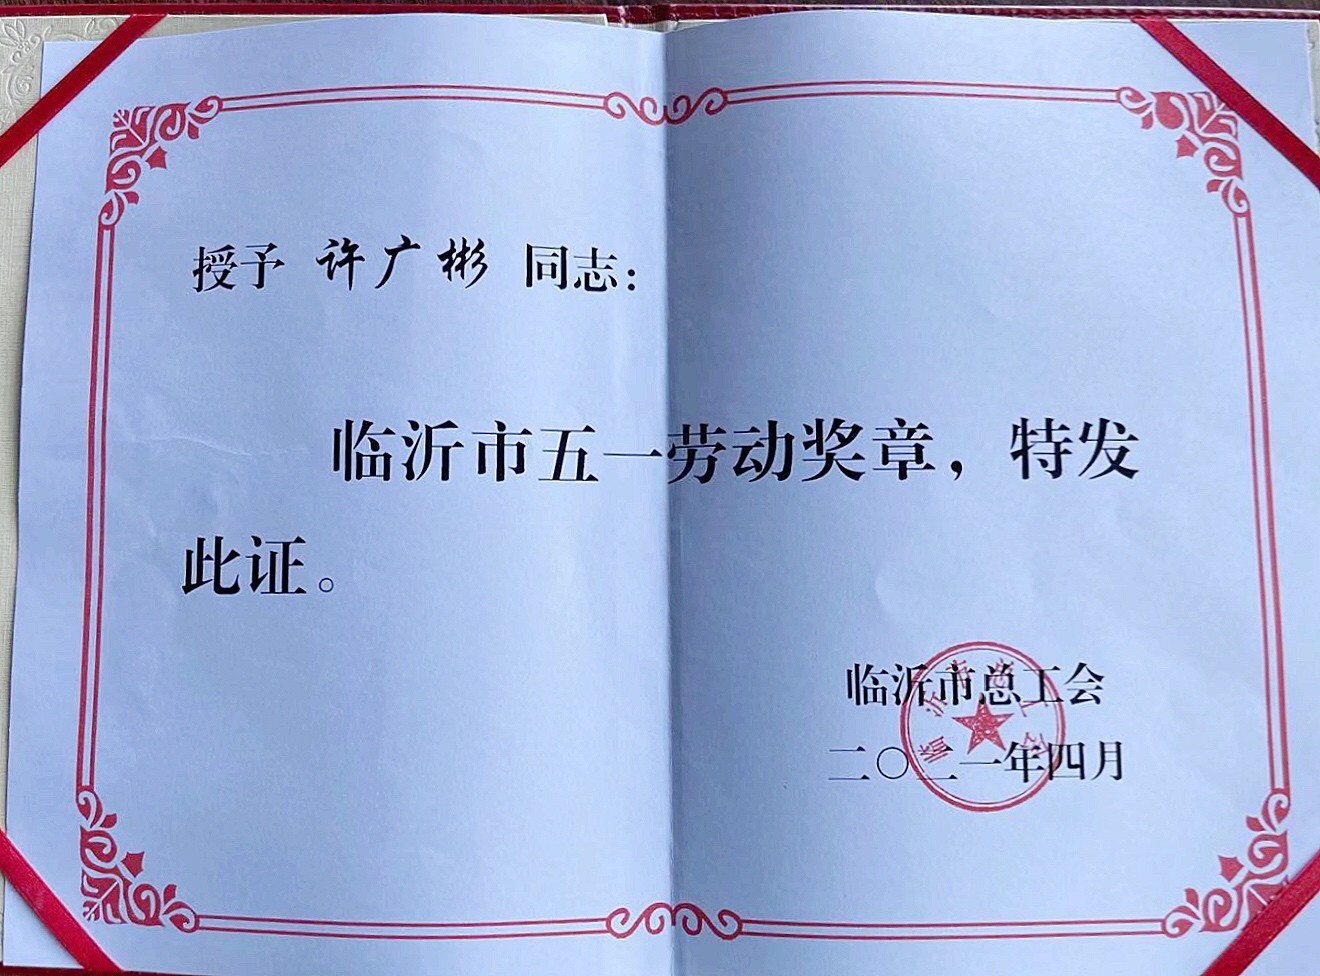 授予 许广彬 同志：
临沂市五一劳动奖章，特发
此证。
临沂市总工会
二〇二一年四月
临沂市总工会